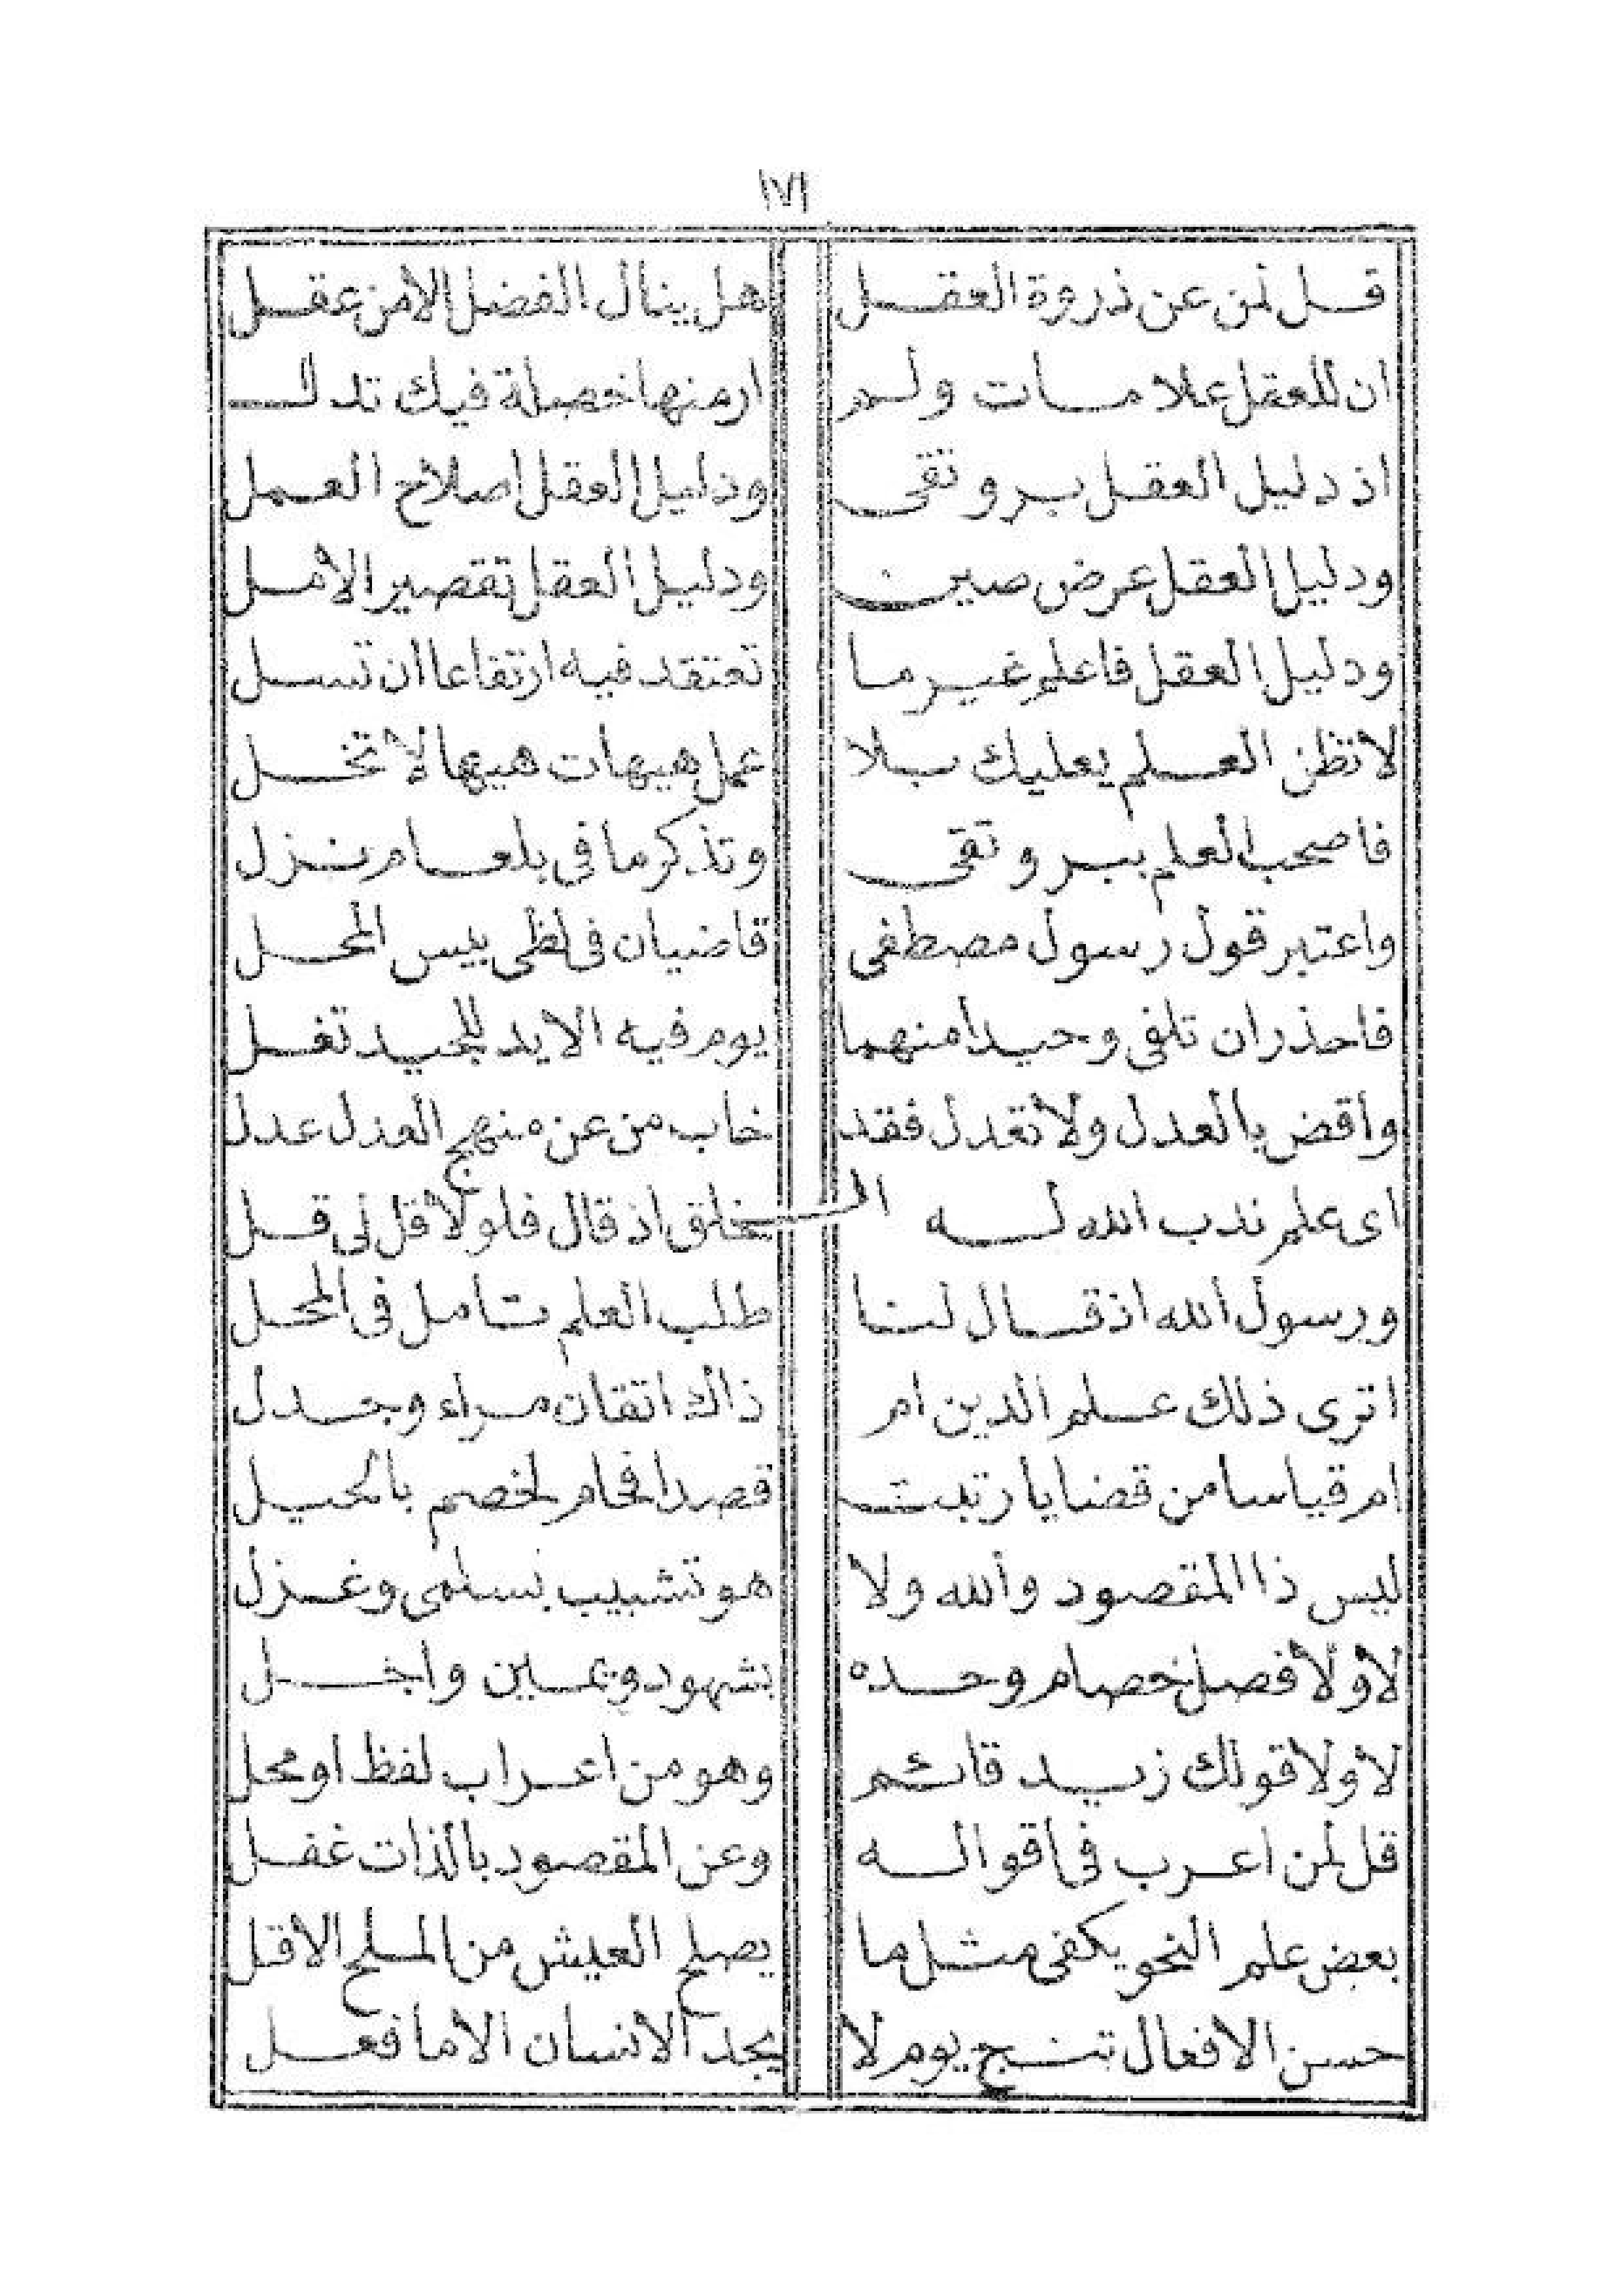 ١٧١
قل لمن عن ذروة العقل هل ينال الفضل الا من عقل
ان للعقل علامات ولم ار منها خصلة فيك تدل
اذ دليل العقل بر وتقى ودليل العقل اصلاح العمل
ودليل العقل عرض صين ودليل العقل تقصير الأمل
ودليل العقل فاعلم غير ما تعتقد فيه ارتفاعا ان تسل
لا تظن العلم يعليك بلا عمل هيهات هيها لا تخل
فاصحب العلم ببر وتقى وتذكر ما فى بلعام نزل
واعتبر قول رسول مصطفى قاضيان فى لظى بيس المحل
فاحذر ان تلفى وحيدا منهما يوم فيه الايد للجيد تغل
واقض بالعدل ولا تعدل فقد خاب من عن منهج العدل عدل
اى علم ندب الله له الـخلق اذ قال فلولا قل لى قل
ورسول الله اذ قال لنا طلب العلم تامل فى المحل
اترى ذلك علم الدين ام ذاك اتقان مراء وجدل
ام قياسا من قضايا رتبت قصد افحام لخصم بالحيل
ليس ذا المقصود والله ولا هو تشبيب بسلمى وغزل
لا ولا فصل خصام وحده بشهود ويمين واجل
لا ولا قولك زيد قائم وهو من اعراب لفظ او محل
قل لمن اعرب فى اقواله وعن المقصود بالذات غفل
بعض علم النحو يكفى مثل ما يصلح العيش من الملح الاقل
حسن الافعال تنج يوم لا يجد الانسان الا ما فعل